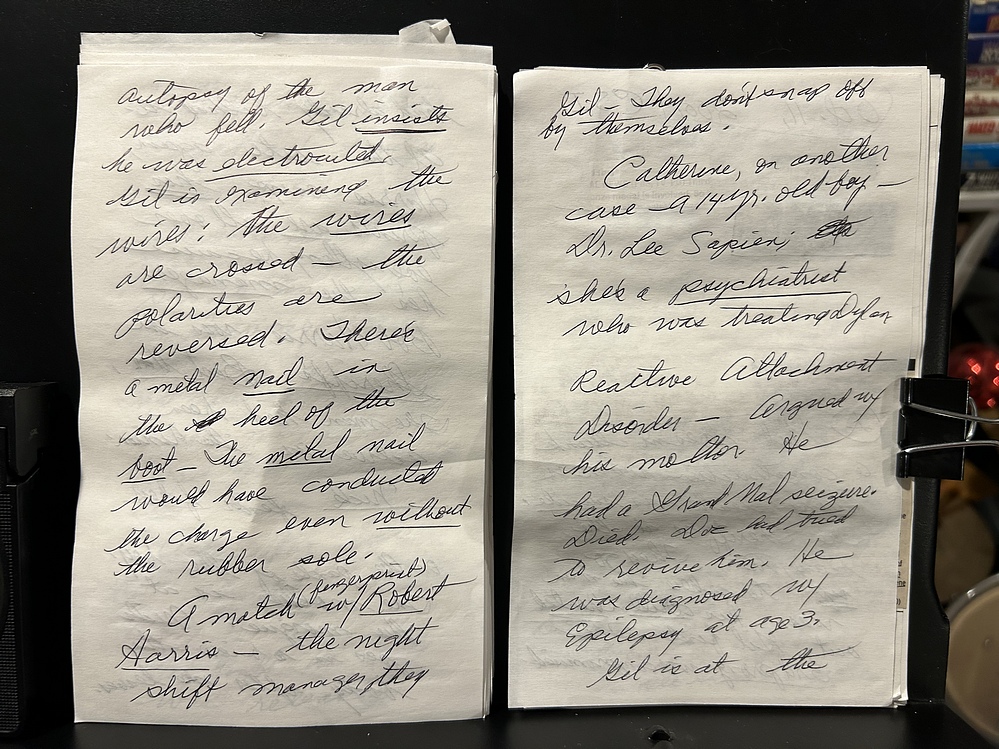 autopsy of the man
who fell. Gil insists
he was electrocuted.
Gil is examining the
wires; the wires
are crossed — the
polarities are
reversed. There's
a metal nail in
the heel of the
boot — The metal nail
would have conducted
the charge even without
the rubber sole.
A match (fingerprint) w/ Robert
Harris — the night
shift manager, they
Gil — They don't snap off
by themselves.
Catherine, on another
case — a 14 yr. old boy —
Dr. Lee Sapien;
she's a psychiatrist
who was treating Dylan
Reactive Attachment
Disorder — Argued w/
his mother He
had a Grand Mal seizure.
Died. Doc had tried
to revive him. He
was diagnosed w/
Epilepsy at age 3.
Gil is at the